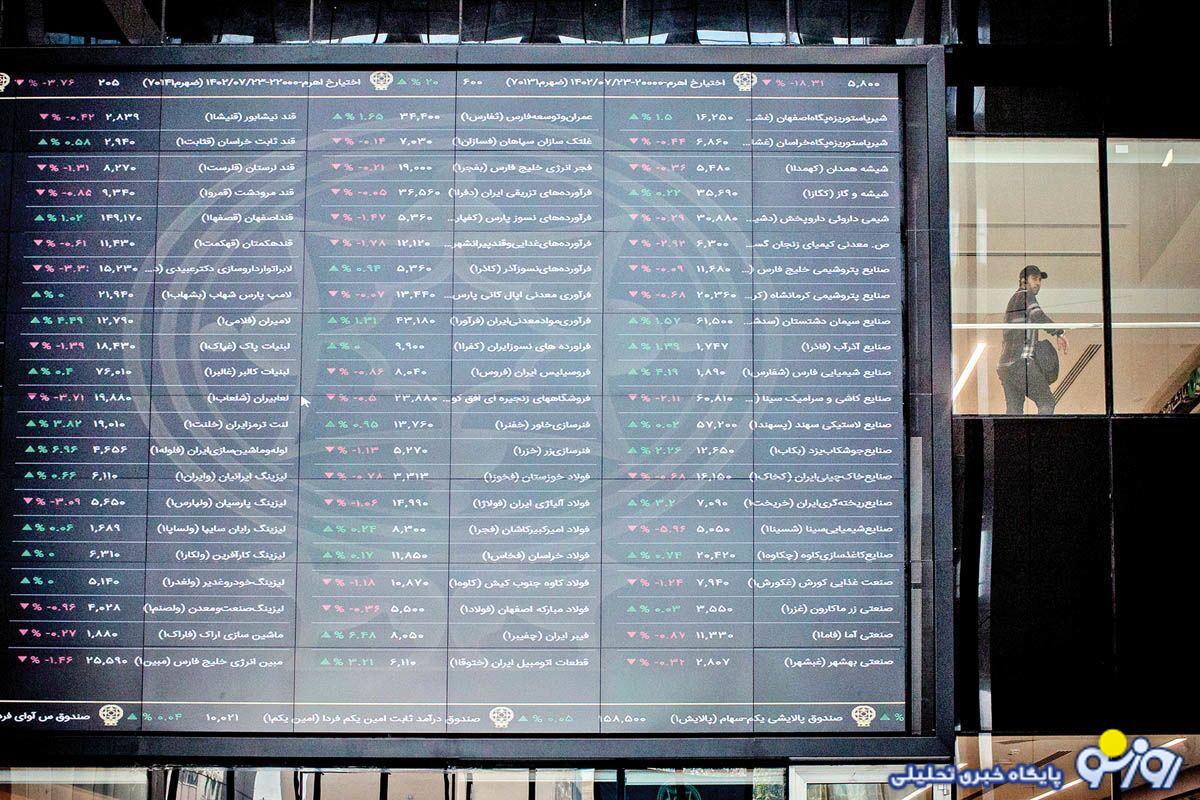 ۵,۸۰۰ -۱۸.۳۱ % اختیارخ اهرم-۲۰۰۰۰-۱۴۰۲/۰۷/۲۳ (ضهرم۷۰۱۳۱) ۶۰۰ ۲۰ % اختیارخ اهرم-۲۲۰۰۰-۱۴۰۲/۰۷/۲۳ (ضهرم۷۰۱۴۱) ۲۰۵ -۳.۷۶ %
شیرپاستوریزه‌پگاه‌اصفهان (غشـ... ۱۶,۲۵۰ ۱.۵ % عمران‌وتوسعه‌فارس (ثفارس۱) ۳۴,۴۰۰ ۱.۶۵ % قند نیشابور (قنیشا۱) ۲,۸۳۹ -۰.۴۲ %
شیرپاستوریزه‌پگاه‌خراسان (غشا... ۶,۸۶۰ -۰.۴۴ % غلتک سازان سپاهان (فسازان۱) ۷,۰۳۰ -۰.۱۴ % قند ثابت خراسان (قثابت۱) ۲,۹۴۰ ۰.۵۸ %
شیشه همدان (کهمدا۱) ۵,۴۸۰ -۰.۳۶ % فجر انرژی خلیج فارس (بفجر۱) ۱۹,۰۰۰ -۰.۲۱ % قند لرستان (قلرست۱) ۸,۲۷۰ -۱.۳۱ %
شیشه و گاز (کگاز۱) ۳۵,۶۹۰ ۰.۲۲ % فرآورده‌های تزریقی ایران (دفرا۱) ۳۶,۵۶۰ -۰.۰۵ % قند مرودشت (قمرو۱) ۹,۳۴۰ -۰.۸۵ %
شیمی داروئی داروپخش (دشیـ... ۳۰,۸۸۰ -۰.۲۹ % فرآورده‌های نسوز پارس (کفپار... ۵,۳۶۰ -۱.۴۷ % قنداصفهان (قصفها۱) ۱۴۹,۱۷۰ ۱.۰۲ %
ص. معدنی کیمیای زنجان گسـ... ۶,۳۰۰ -۲.۹۲ % فرآورده‌های‌غذایی‌وقندپیرانشهر... ۱۲,۱۲۰ -۱.۷۸ % قندهکمتان (قهکمت۱) ۱۱,۴۳۰ -۰.۶۱ %
صنایع پتروشیمی خلیج فارس (... ۱۱,۶۸۰ -۰.۰۹ % فرآورده‌های‌نسوزآذر (کاذر۱) ۵,۳۶۰ ۰.۹۴ % لابراتوارداروسازی دکترعبیدی (د... ۱۵,۲۳۰
صنایع پتروشیمی کرمانشاه (کر... ۲۰,۳۶۰ -۰.۶۸ % فرآوری معدنی اپال کانی پارس... ۱۳,۴۴۰ -۰.۰۷ % لامپ پارس شهاب (بشهاب۱) ۲۱,۹۴۰ ۰ %
صنایع سیمان دشتستان (سدشـ... ۶۱,۵۰۰ ۱.۵۷ % فرآوری‌موادمعدنی‌ایران (فرآور۱) ۴۳,۱۸۰ ۱.۳۱ % لامیران (فلامی۱) ۱۲,۷۹۰ ۴.۴۹ %
صنایع آذرآب (فاذر۱) ۱,۷۴۷ ۱.۳۹ % فراورده های نسوزایران (کفرا۱) ۹,۹۰۰ ۰ % لبنیات پاک (غپاک۱) ۱۸,۴۳۰ -۱.۳۹ %
صنایع شیمیایی فارس (شفارس۱) ۱,۸۹۰ ۴.۱۹ % فروسیلیس ایران (فروس۱) ۸,۰۴۰ -۰.۸۶ % لبنیات کالبر (غالبر۱) ۷۶,۰۱۰ ۰.۴ %
صنایع کاشی و سرامیک سینا (... ۶۰,۸۱۰ -۲.۱۱ % فروشگاههای زنجیره ای افق کو... ۲۳,۸۸۰ -۰.۵ % لعابیران (شلعاب۱) ۱۹,۸۸۰ -۳.۷۱ %
صنایع لاستیکی سهند (پسهند۱) ۵۷,۲۰۰ ۰.۰۲ % فنرسازی‌خاور (خفنر۱) ۱۳,۷۶۰ ۰.۹۵ % لنت ترمزایران (خلنت۱) ۱۹,۰۱۰ ۳.۸۲ %
صنایع‌جوشکاب‌یزد (بکاب۱) ۱۲,۶۵۰ ۲.۲۶ % فنرسازی‌زر (خزر۱) ۵,۲۷۰ -۱.۱۳ % لوله‌وماشین‌سازی‌ایران (فلوله۱) ۴,۶۵۶ ۶.۹۶ %
صنایع‌خاک‌چینی‌ایران (کخاک۱) ۱۶,۱۵۰ -۰.۶۸ % فولاد خوزستان (فخوز۱) ۳,۳۱۳ -۰.۷۸ % لیزینگ ایرانیان (وایران۱) ۶,۱۱۰ ۰.۶۶ %
صنایع‌ریخته‌گری‌ایران (خریخت۱) ۷,۰۹۰ ۳.۲ % فولاد آلیاژی ایران (فولاژ۱) ۱۴,۹۹۰ -۱.۰۶ % لیزینگ پارسیان (ولپارس۱) ۵,۶۵۰ -۳.۰۹ %
صنایع‌شیمیایی‌سینا (شسینا۱) ۵,۰۵۰ -۵.۹۶ % فولاد امیرکبیرکاشان (فجر۱) ۸,۳۰۰ ۰.۲۴ % لیزینگ رایان سایپا (ولساپا۱) ۱,۶۸۹ ۰.۰۶ %
صنایع‌کاغذسازی‌کاوه (چکاوه۱) ۲۰,۴۲۰ ۰.۷۴ % فولاد خراسان (فخاس۱) ۱۱,۸۵۰ ۰.۱۷ % لیزینگ کارآفرین (ولکار۱) ۶,۳۱۰ ۰ %
صنعت غذایی کورش (غکورش۱) ۷,۹۴۰ -۱.۲۴ % فولاد کاوه جنوب کیش (کاوه۱) ۱۰,۸۷۰ -۱.۱۸ % لیزینگ‌خودروغدیر (ولغدر۱) ۵,۱۴۰ ۰ %
صنعتی زر ماکارون (غزر۱) ۳,۵۵۰ ۰.۰۳ % فولاد مبارکه اصفهان (فولاد۱) ۵,۵۰۰ -۰.۳۶ % لیزینگ‌صنعت‌ومعدن (ولصنم۱) ۴,۰۲۸ -۰.۹۶ %
صنعتی آما (فاما۱) ۱۱,۳۳۰ -۰.۸۷ % فیبر ایران (چفیبر۱) ۸,۰۵۰ ۶.۴۸ % ماشین سازی اراک (فاراک۱) ۱,۸۸۰ -۰.۲۷ %
صنعتی بهشهر (غبشهر۱) ۲,۸۰۷ -۰.۳۲ % قطعات اتومبیل ایران (ختوقا۱) ۶,۱۱۰ ۳.۲۱ % مبین انرژی خلیج فارس (مبین۱) ۲۵,۵۹۰ -۱.۴۶ %
% صندوق پالایشی یکم-سهام (پالایش۱) ۱۵۸,۵۰۰ ۰.۰۵ % صندوق درآمد ثابت امین یکم فردا (امین یکم۱) ۱۰,۰۲۱ ۰.۰۴ % صندوق س آوای فر
روزنو
پایگاه خبری تحلیلی